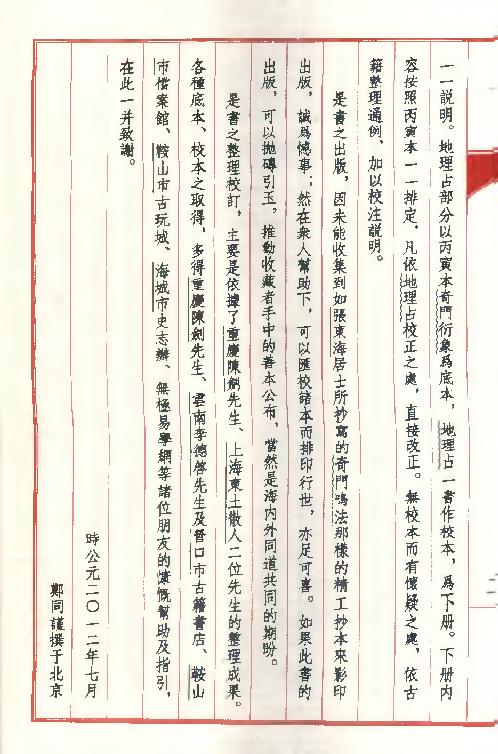 一一説明。地理占部分以丙寅本奇門衍象爲底本，地理占一書作校本，爲下册。下册内
容按照丙寅本一一排定，凡依地理占校正之處，直接改正。無校本而有懷疑之處，依古
籍整理通例，加以校注説明。
是書之出版，因未能收集到如張東海居士所抄寫的奇門鳴法那樣的精工抄本來影印
出版，誠爲憾事；然在衆人幫助下，可以匯校諸本而排印行世，亦足可喜。如果此書的
出版，可以拋磚引玉，推動收藏者手中的善本公布，當然是海内外同道共同的期盼。
是書之整理校訂，主要是依據了重慶陳劍先生、上海東土散人二位先生的整理成果。
各種底本、校本之取得，多得重慶陳劍先生、雲南李德啓先生及營口市古籍書店、鞍山
市檔案館、鞍山市古玩城、海城市史志辦、無極易學網等諸位朋友的慷慨幫助及指引，
在此一并致謝。
時公元二〇一二年七月
鄭同謹撰于北京